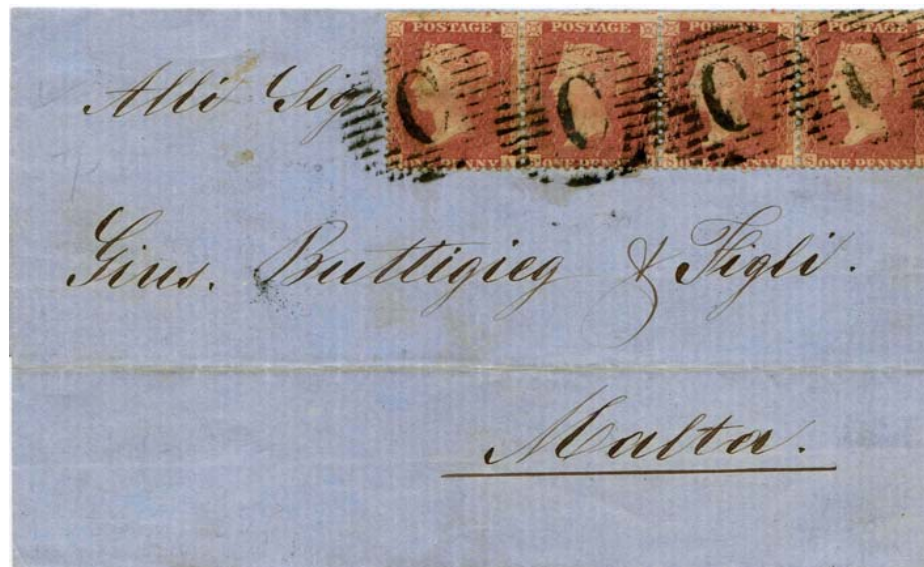 POSTAGE POSTAGE POSTAGE POSTAGE
Alli Sig
C C C C
ONE PENNY ONE PENNY ONE PENNY ONE PENNY
Gius. Buttigieg & Figli.
Malta.